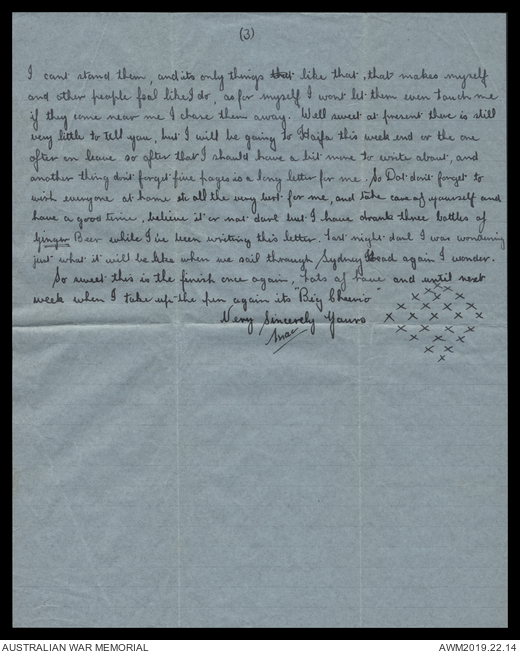 (3)
I cant stand them, and its only things that like that, that makes myself
and other people feel like I do, as for myself I wont let them even touch me
if they come near me I chase them away. Well sweet at present there is still
very little to tell you, but I will be going to Haifa this week end or the one
after on leave so after that I should have a bit more to write about, and
another thing don't forget five pages is a long letter for me. So Dot don't forget to
wish everyone at home all the very best for me, and take care of yourself and
have a good time, believe it or not darl but I have drank three bottles of
Ginger Beer while I've been writing this letter. Last night darl I was wondering
just what it will be like when we sail through Sydney Head again I wonder.
So sweet this is the finish once again, Lots of love and until next
week when I take up the pen again its "Big Cheerio"
Very Sincerely Yours
Mac
x x x
x x x x
x x x x x
x x x x
x x x
x x
x
AUSTRALIAN WAR MEMORIAL
AWM2019.22.14